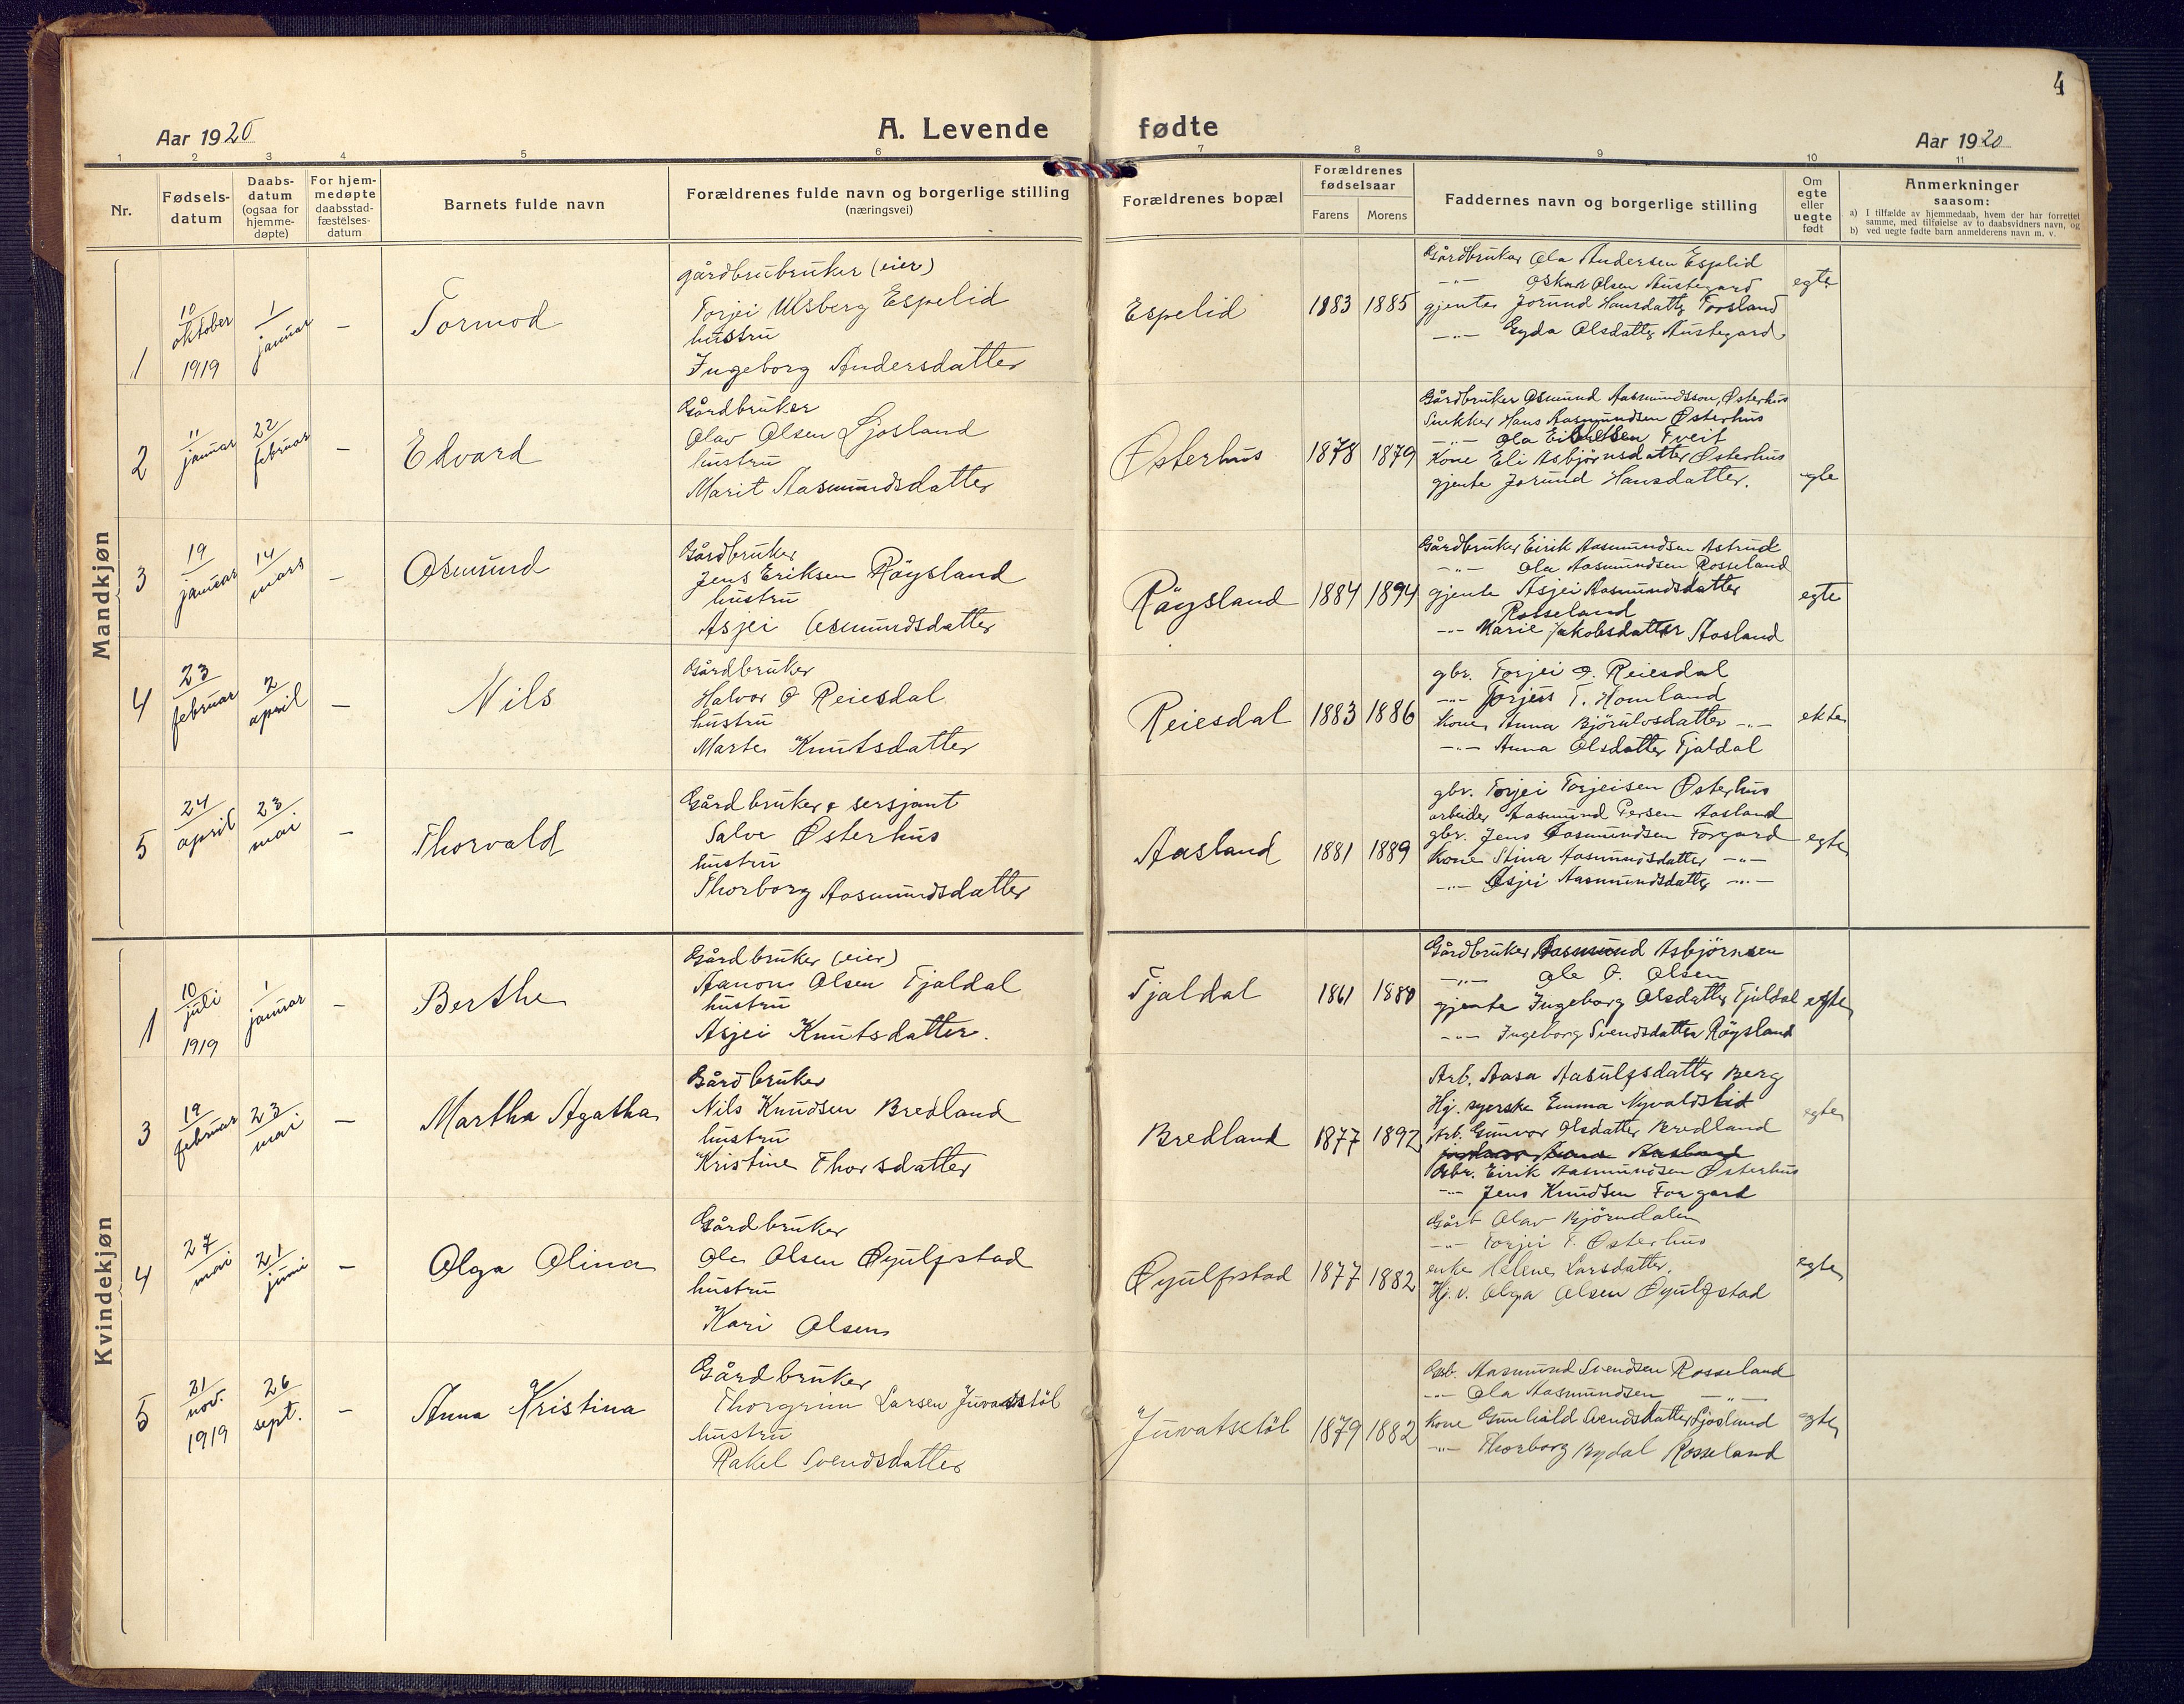 4
Aar 1920
A. Levende fødte
Aar 1920
1 2 3 4 5 6 7 8 9 10 11
Nr.
Fødsels-
datum
Daabs-
datum
(ogsaa for
hjemme-
døpte)
For hjem-
medøpte
daabsstad-
fæstelses-
datum
Barnets fulde navn
Forældrenes fulde navn og borgerlige stilling
(næringsvei)
Forældrenes bopæl
Forældrenes
fødselsaar
Farens
Morens
Faddernes navn og borgerlige stilling
Om
egte
eller
uegte
født
Anmerkninger
saasom:
a) I tilfælde av hjemmedaab, hvem der har forrettet
samme, med tilføielse av to daabsvidners navn, og
b) ved uegte fødte barn anmelderens navn m. v.
Mandkjøn
1
10
oktober
1919
1
januar
-
Tormod
gårdbrubruker (eier)
Torjei Ulsberg Espelid
hustru
Ingeborg Andersdatter
Espelid
1883
1885
Gårdbruker Ola Andersen Espelid
-"- Oskar Olsen Austegard
gjente Jorund Hansdatter Fosland
-"- Gyda Olsdatter Austegard
egte
2
11
januar
22
februar
-
Edvard
Gårdbruker
Olav Olsen Ljosland
hustru
Marit Aasmundsdatter
Østerhus
1878
1879
Gårdbruker Osmund Aasmundsson, Østerhus
Snekker Hans Aasmundsen Østerhus
-"- Ola Tveit
Kone Eli Asbjørnsdatter Østerhus
gjente Jorund Hansdatter.
egte
3
19
januar
14
mars
-
Osmund
Gårdbruker
Jens Eriksen Röysland
hustru
Asjei Osmundsdatter
Röysland
1884
1894
Gårdbruker Eirik Aasmundsen Astrud
-"- Ola Aasmundsen Rosseland
gjente Asjei Aasmundsdatter
Rosseland
-"- Marie Jakobsdatter Aasland
egte
4
23
februar
2
april
-
Nils
Gårdbruker
Halvor O Reiesdal
hustru
Marte Knutsdatter
Reiesdal
1883
1886
gbr. Torjei O. Reiesdal
-"- Torjus T. Homland
Kone Anna Bjørulvsdatter -"-
-"- Anna Olsdatter Tjaldal
ekte
5
24
april
23
mai
-
Thorvald
Gårdbruker & sersjant
Salve Østerhus
hustru
Thorborg Aasmundsdatter
Aasland
1881
1889
gbr. Torjei Torjeisen Østerhus
arbeider Aasmund Persen Aasland
gbr. Jens Aasmundsen Forgard
Kone Stina Aasmundsdatter -"-
-"- Asjei Aasmundsdatter -"-
egte
Kvindekjøn
1
10
juli
1919
1
januar
-
Berthe
Gårdbruker (eier)
Aanon Olsen Tjaldal
hustru
Asjei Knutsdatter.
Tjaldal
1861
1880
Gårdbruker Aasmund Asbjörnsen
-"- Ole O. Olsen
gjente Ingeborg Olsdatter Tjaldal
-"- Ingeborg Svendsdatter Röysland
egte
3
19
februar
23
mai
-
Martha Agatha
Gårdbruker
Nils Knudsen Bredland
hustru
Kristine Thorsdatter
Bredland
1877
1892
Arb. Aasa Aasulfsdatter Berg
Hj. syerske Emma Nyvoldslid
Arb. Gunvor Olsdatter Bredland
Gbr. Eirik Aasmundsen Østerhus
-"- Jens Knudsen Forgard
egte
4
27
mai
21
juni
-
Olga Olina
Gårdbruker
Ole Olsen Øyulfstad
hustru
Kari Olsen
Øyulfstad
1877
1882
Gårb Olav Bjørndalen
-"- Torjei T. Østerhus
enke Helene Larsdatter.
Hj. v. Olga Olsen Øyulfstad
egte
5
21
nov.
1919
26
sept.
-
Anna Kristina
Gårdbruker
Thorgrim Larsen Juvatstöl
hustru
Rakel Svendsdatter
Juvatstöl
1879
1882
Gab. Aasmund Svendsen Rosseland
-"- Ola Aasmundsen -"-
kone Gunhild Svendsdatter Ljosland
-"- Thorborg Bydal Rosseland
egte